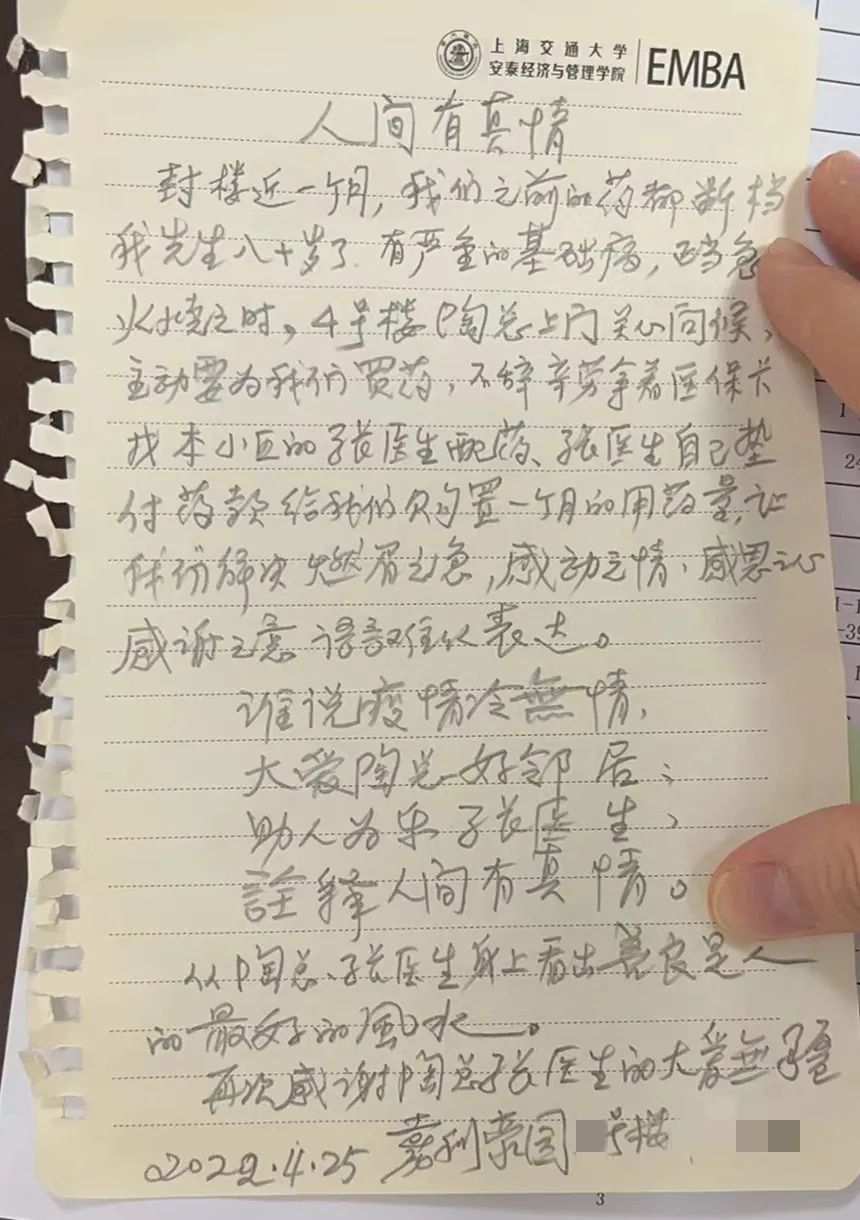 上海交通大学
安泰经济与管理学院
EMBA
人间有真情
封楼近一个月,我们之前的药都断档
我先生八十岁了.有严重的基础病,正当急
火燎之时,4号楼陶总上门关心问候,
主动要为我们买药,不辞辛劳拿着医保卡
找本小区的张医生配药、张医生自己垫
付药款给我们购置一个月的用药量,让
我们解决燃眉之急,感动之情、感恩之心
感谢之意 语言难以表达。
谁说疫情冷無情,
大爱陶总好邻居;
助人为乐张医生,
詮释人间有真情。
从陶总、张医生身上看出善良是人
的最好的風水。
再次感谢陶总张医生的大爱無疆
2022.4.25 嘉利帝国 号楼
3